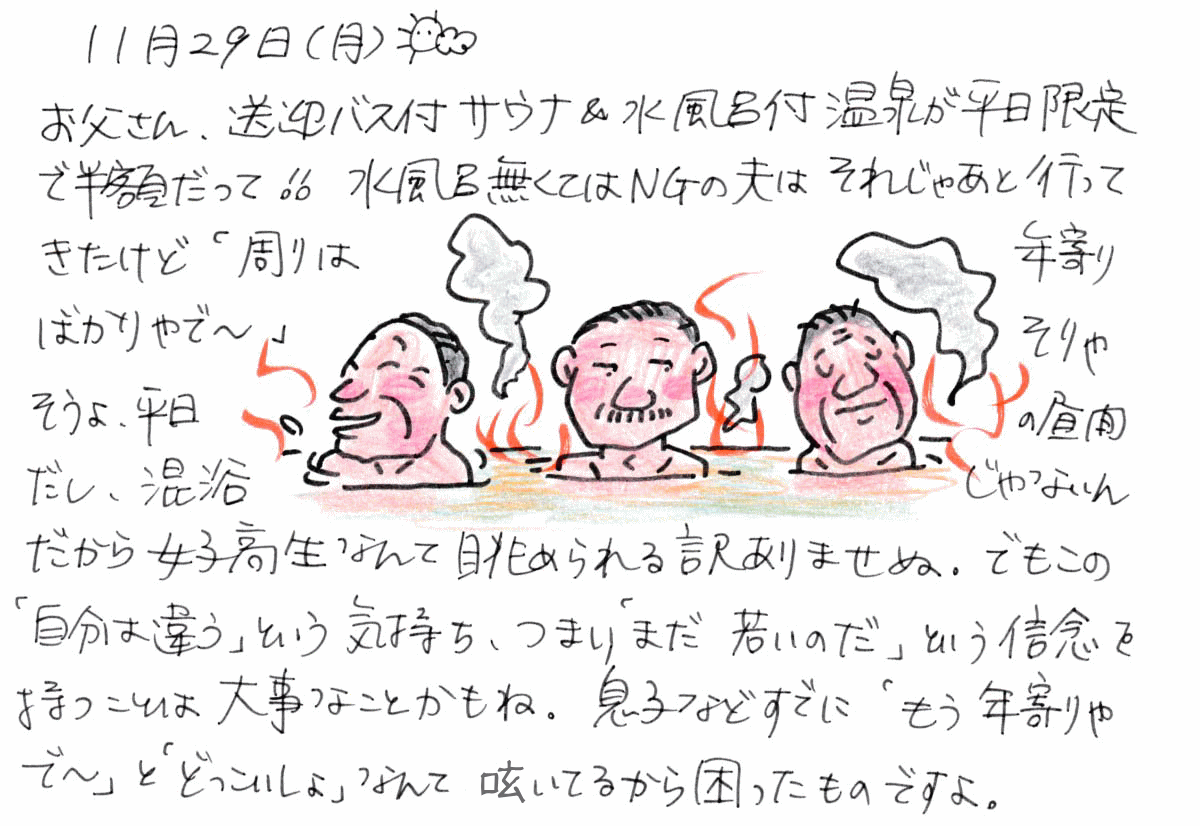 11月29日(月)
お父さん、送迎バス付サウナ&水風呂付温泉が平日限定
で半額だって!! 水風呂無くてはNGの夫はそれじゃあと行って
きたけど「周りは 年寄り
ばかりやで〜」 そりゃ
そうよ、平日 の昼間
だし、混浴 じゃないん
だから女子高生なんて眺められる訳ありませぬ。でもこの
「自分は違う」という気持ち、つまり「まだ若いのだ」という信念を
持つことは大事なことかもね。息子などすでに「もう年寄りや
で〜」と「どっこいしょ」なんて呟いてるから困ったものですよ。